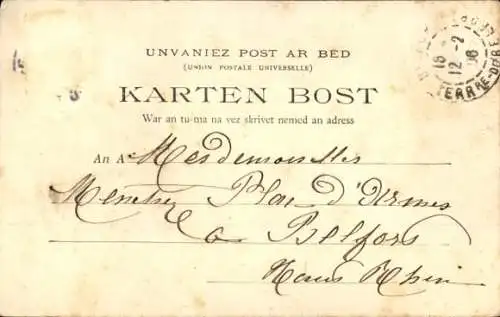 UNVANIEZ POST AR BED
(UNION POSTALE UNIVERSELLE)
KARTEN BOST
War an tu-ma na vez skrivet nemed an adress
An A Mesdemoiselles
Place d'Armes
à Belfort
Haut Rhin
16
12-2
06